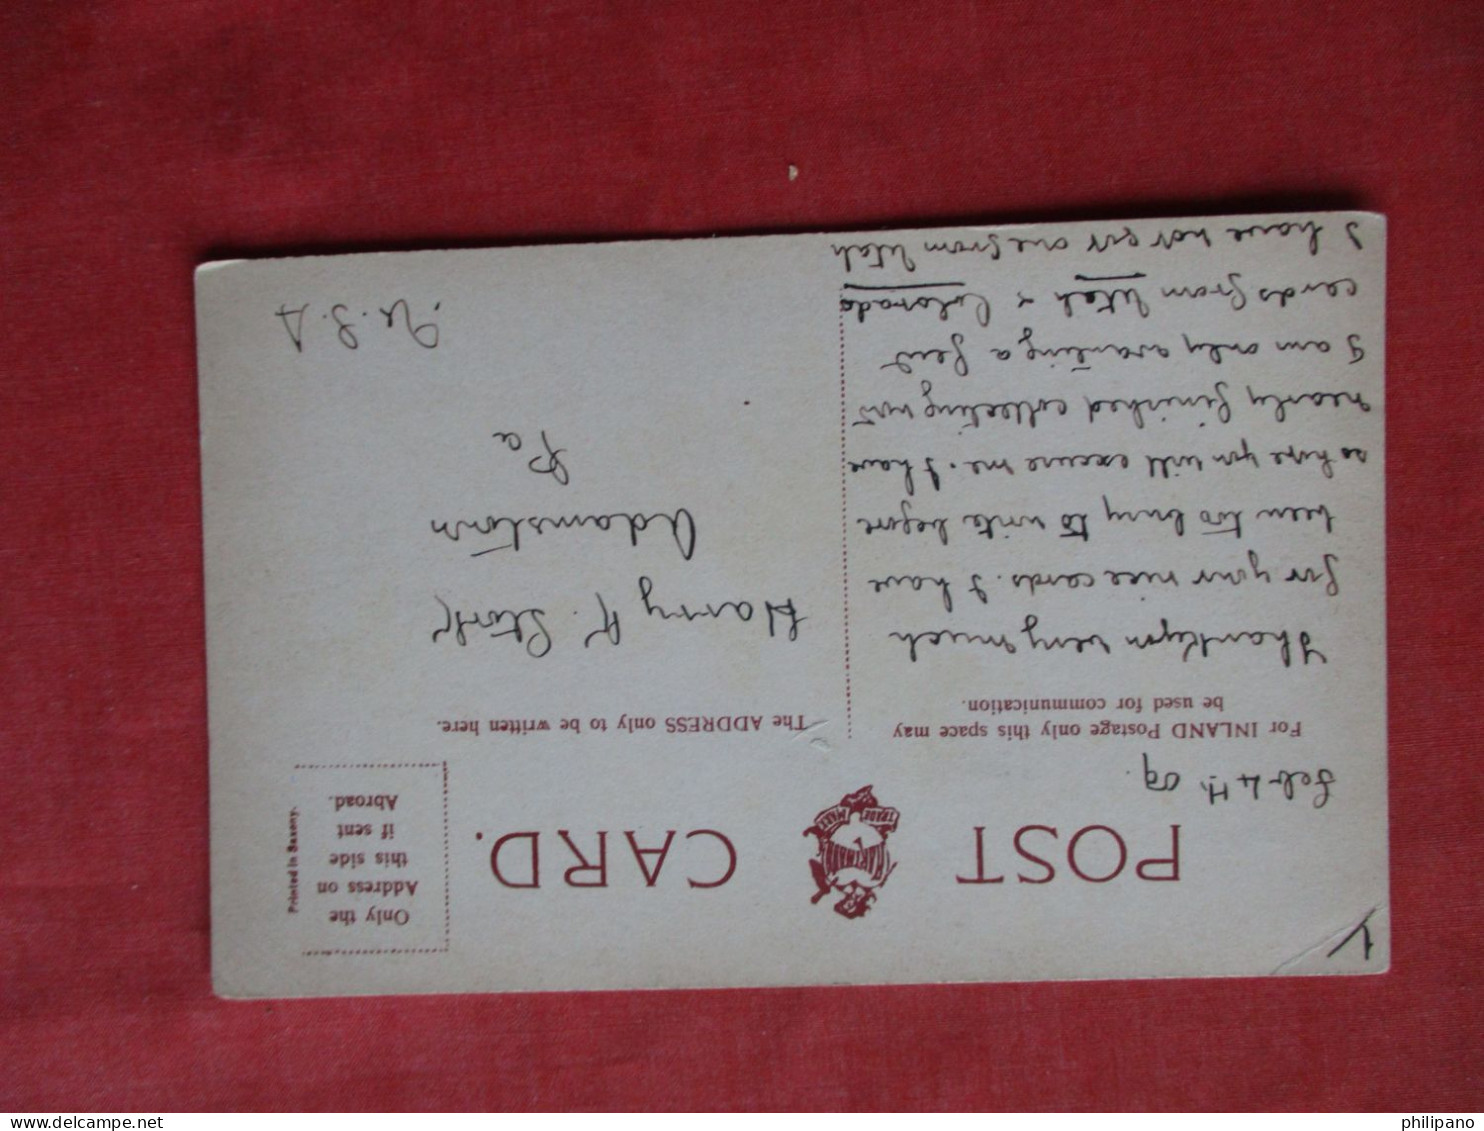 POST CARD.
HARTMANN
TRADE MARK
Feb 4th. 09.
For INLAND Postage only this space may
be used for communication.
Thankyou very much
for your nice cards. I have
been too busy to write before
so hope you will excuse me. I have
nearly finished collecting now
I am only wanting a few
cards from Utah & Colorado
I have not got one from Utah
The ADDRESS only to be written here.
Harry K. Stork
Adamstown
Pa
U.S.A
Only the
Address on
this side
if sent
Abroad.
Printed in Saxony.
philipano